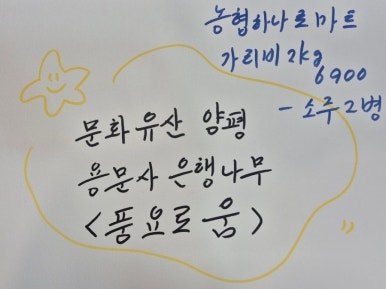 농협하나로마트
가리비 2kg
6900
- 소주 2병
문화유산 양평
용문사 은행나무
<풍요로움>